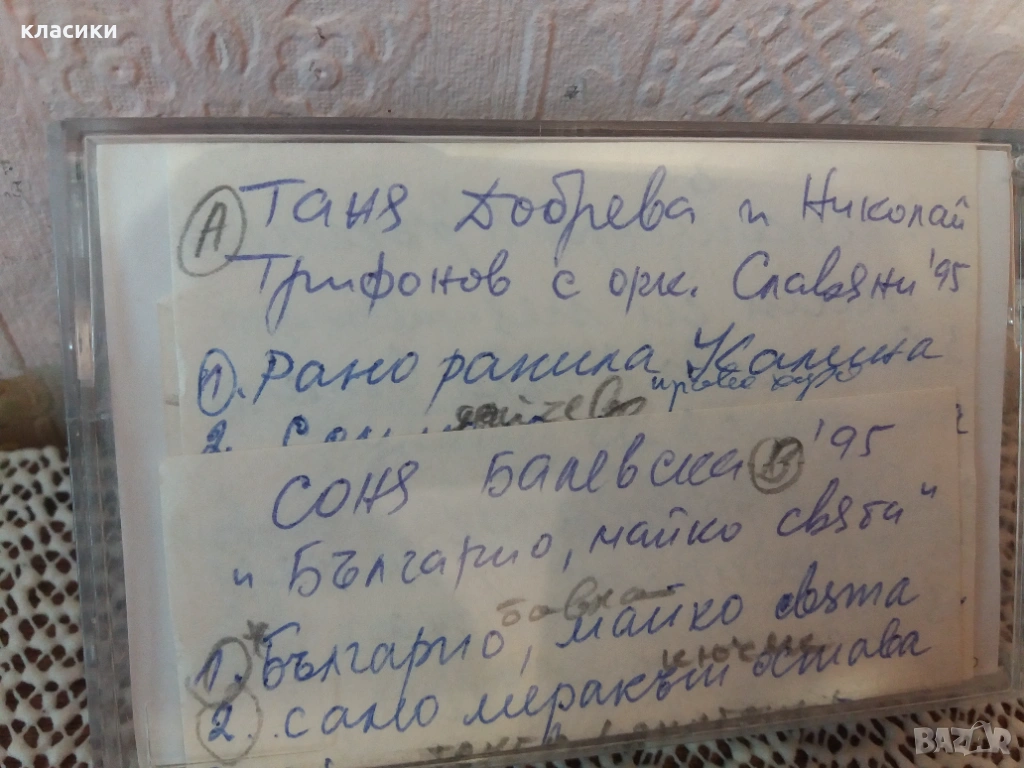 класики
А Таня Добрева и Николай
Трифонов с орк. Славяни '95
1. Рано ранила Калина
право хоро
2.
Соня Балевска В '95
"Българио, майко свята"
бавна
1. * Българио, майко свята
кючек
2. само меракът остава
BAZAR